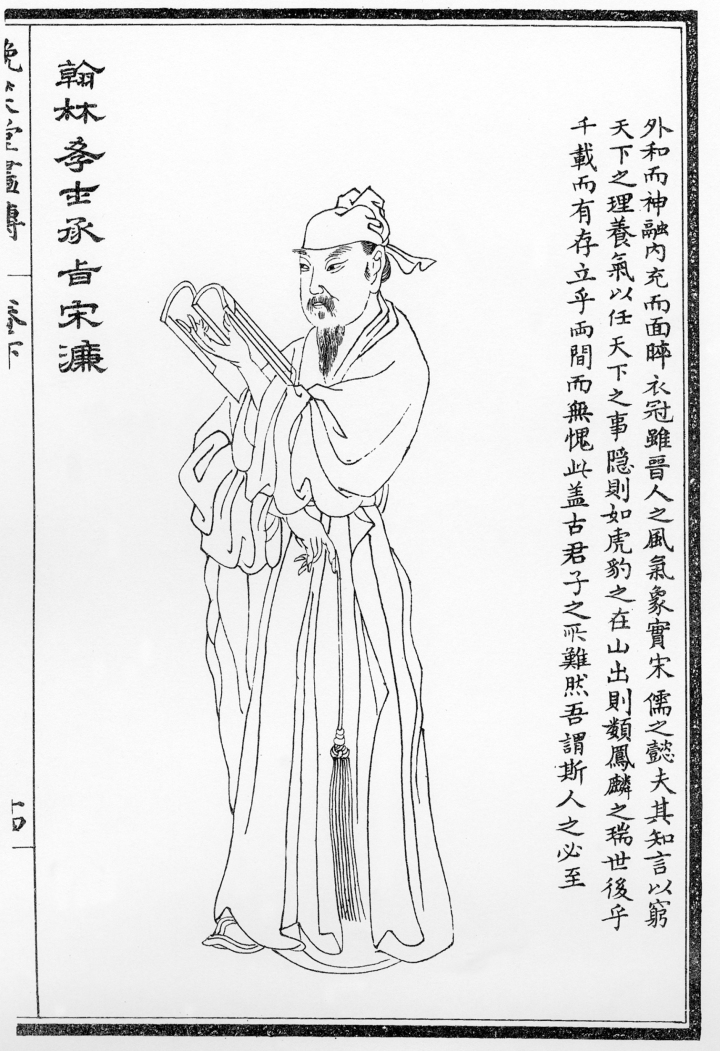 外和而神融內充而面睟衣冠雖晉人之風氣象實宋儒之懿夫其知言以窮
天下之理養氣以任天下之事隐則如虎豹之在山出則類鳳麟之瑞世後乎
千載而有存立乎両間而無愧此盖古君子之所難然吾謂斯人之必至
翰林學士承旨宋濂
晚笑堂畫傳
卷下